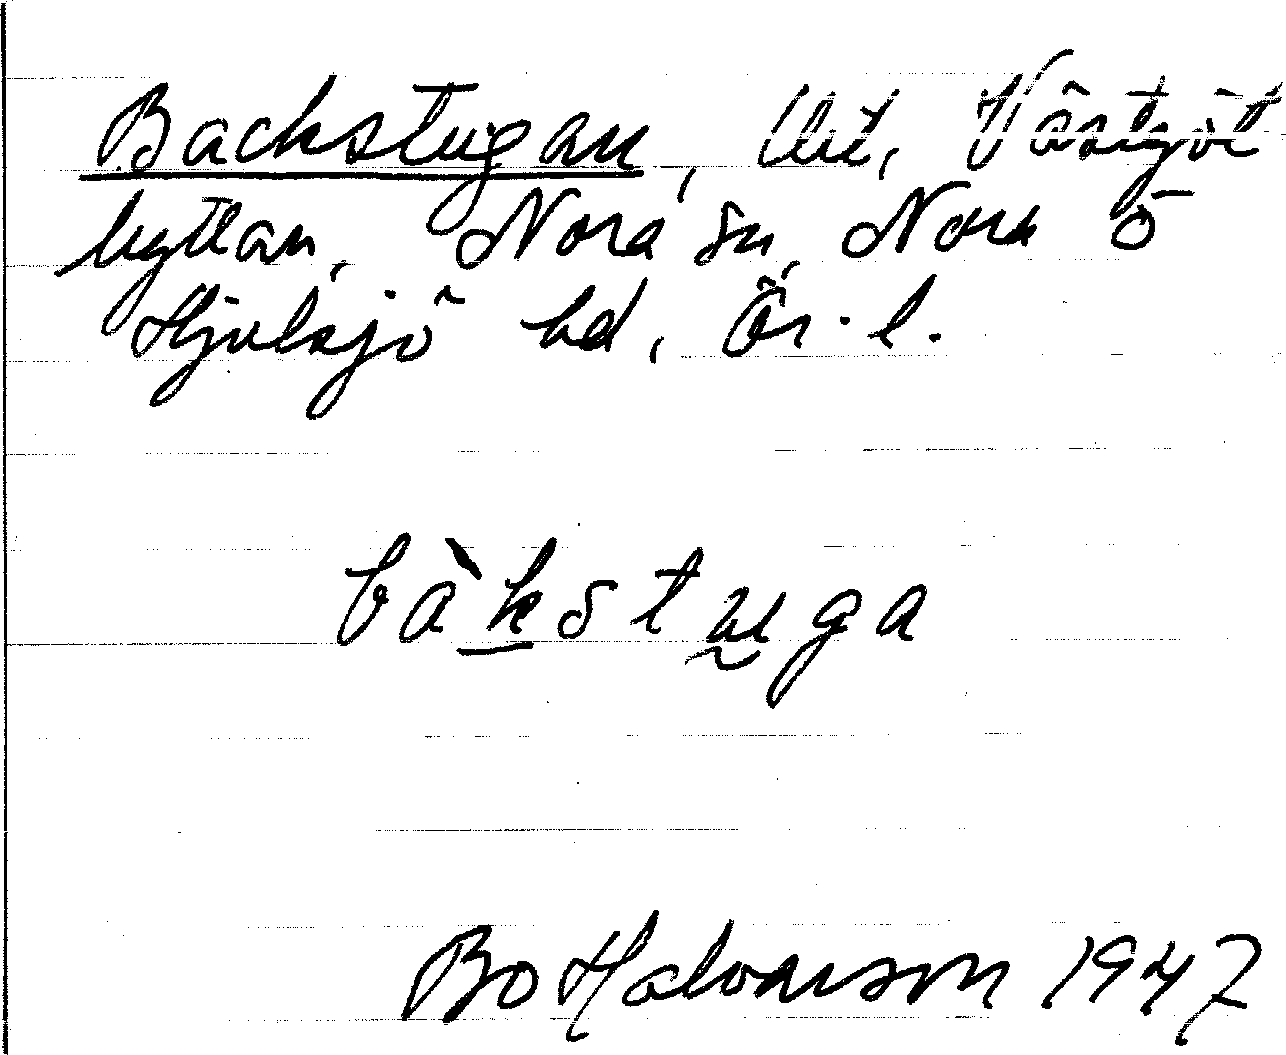 Backstugan, lht, Västgöt
hyttan, Nora sn, Nora o
Hjulsjö hd, Ör. l.
bàkstuga
Bo Halvarson 1947